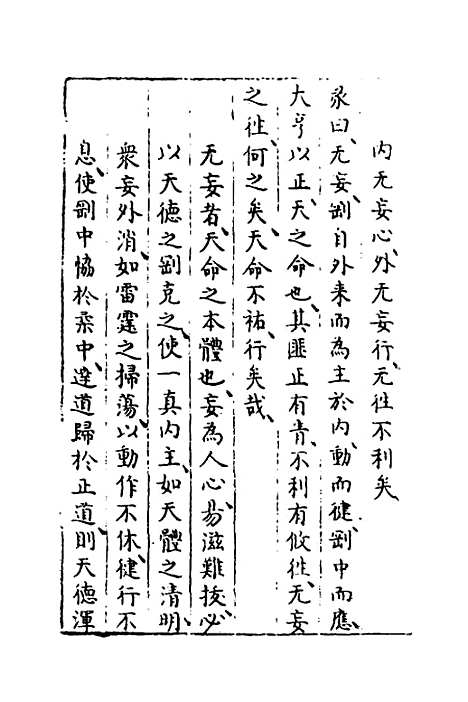 內无妄心、外无妄行、无徃不利矣
彖曰、无妄、剛自外来而為主於內、動而健、剛中而應、
大亨以正、天之命也、其匪正有眚、不利有攸徃、无妄
之徃、何之矣、天命不祐、行矣哉、
无妄者、天命之本體也、妄為人心、易滋難拔、必
以天德之剛克之、使一真內主、如天體之清明、
衆妄外消、如雷霆之掃蕩、以動作不休、健行不
息、使剛中恊於柔中、達道歸於正道、則天德渾